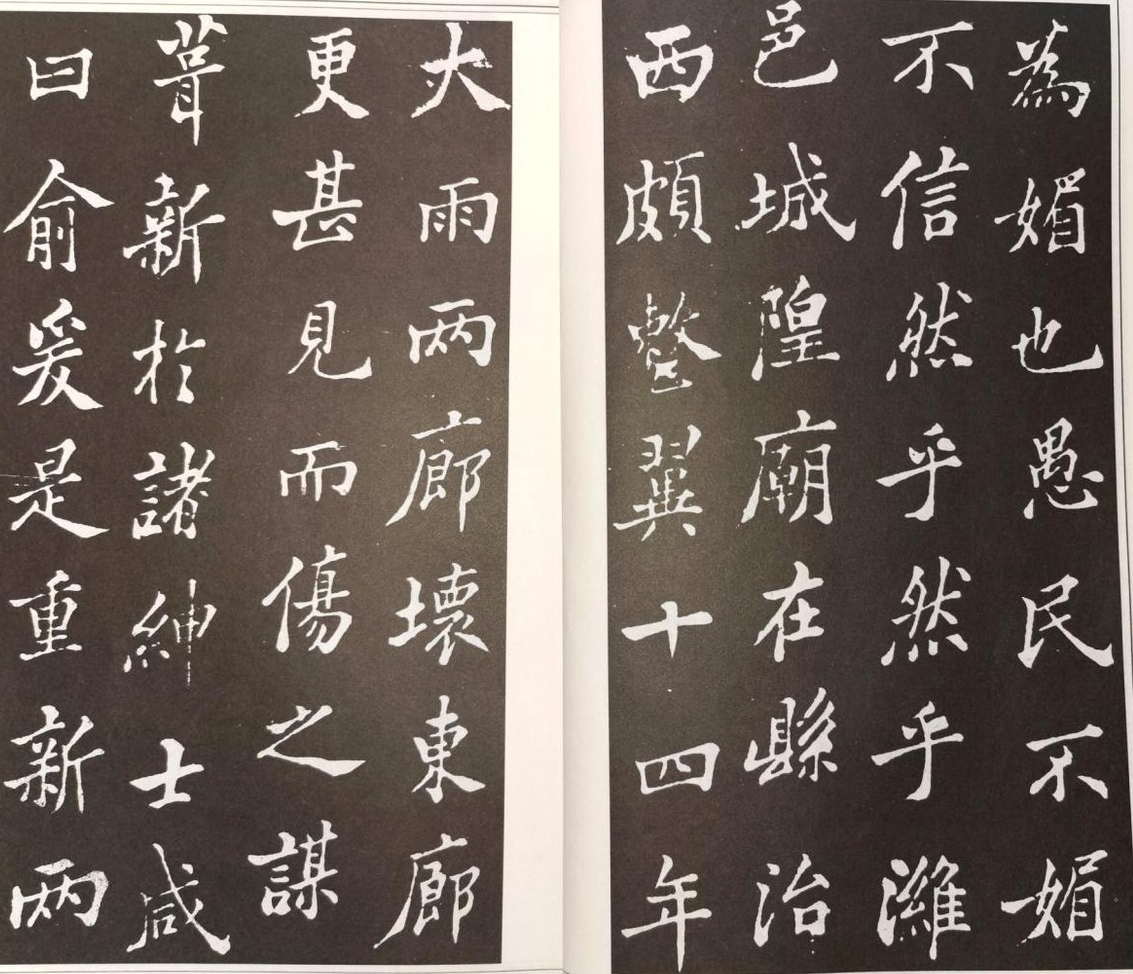 為媚也愚民不媚
不信然乎然乎濰
邑城隍廟在縣治
西頗整翼十四年
大雨两廊壞東廊
更甚見而傷之謀
葺新於諸紳士咸
曰俞爰是重新两